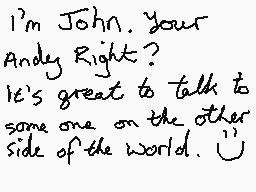 I'm John. Your
Andy Right?
It's great to talk to
some one on the other
side of the world.